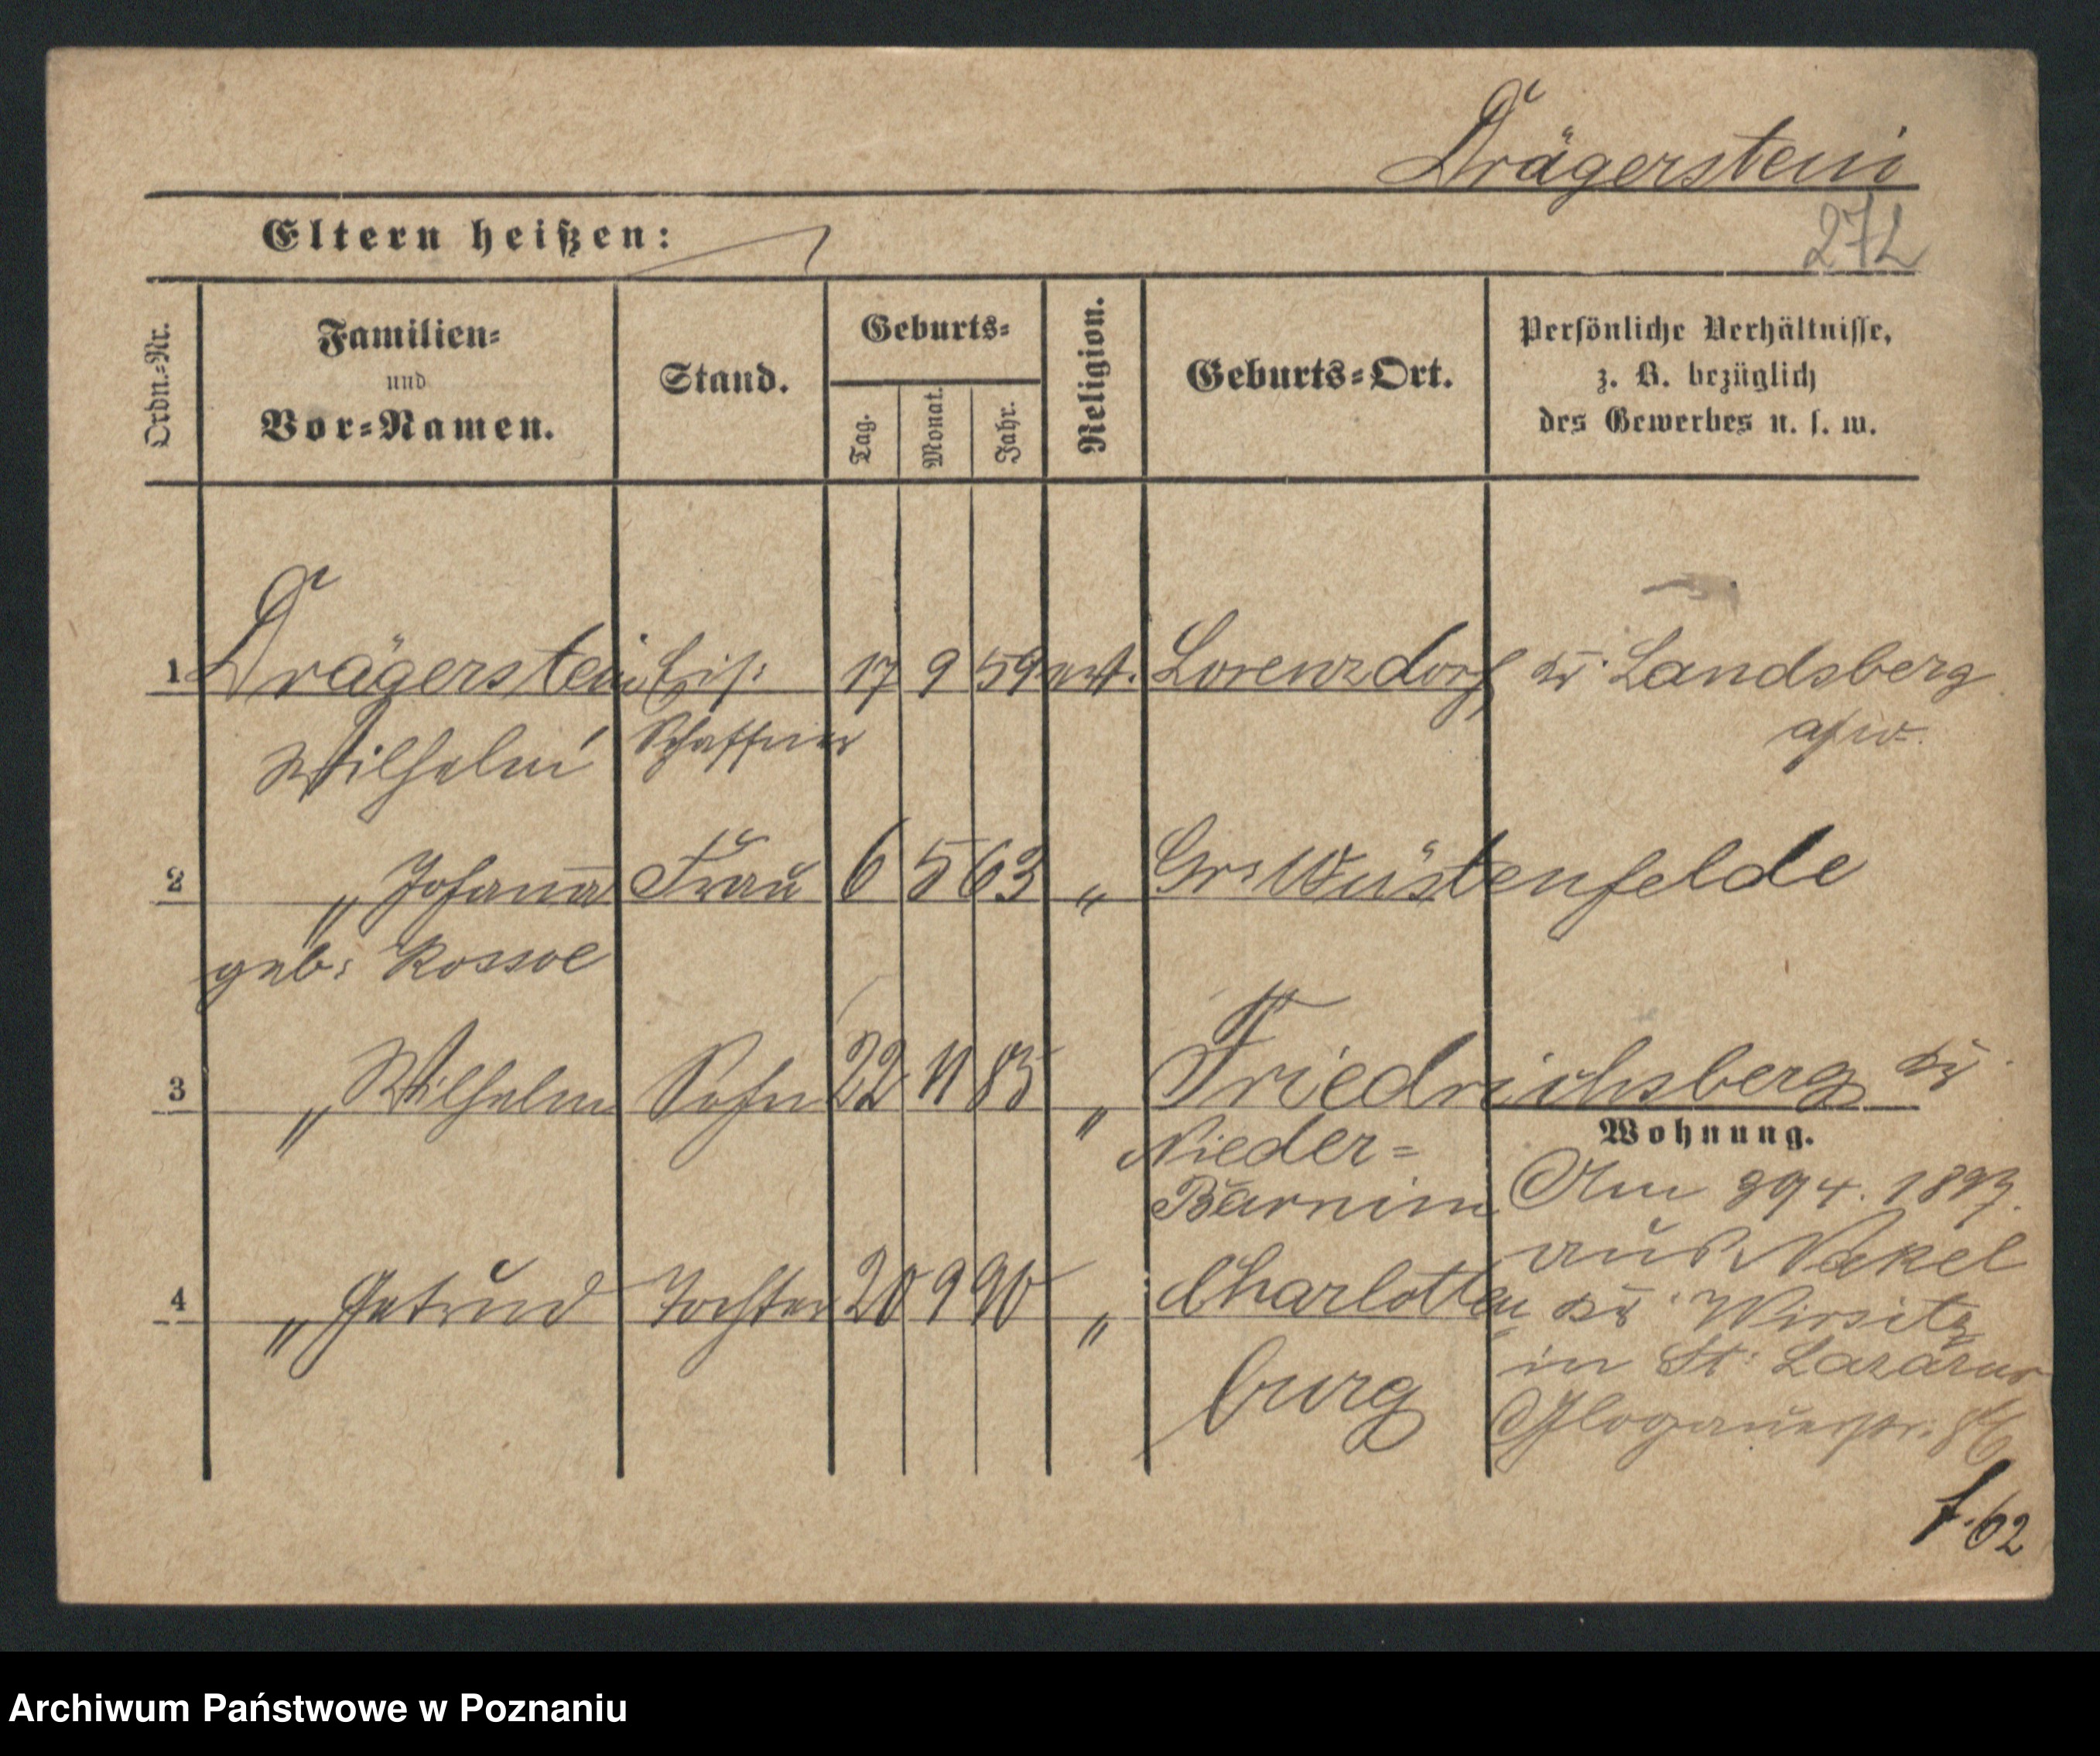 Drägerstein
Eltern heißen:
272
Ordn.-Nr.
Familien-
und
Vor-Namen.
Stand.
Geburts-
Tag.
Monat.
Jahr.
Religion.
Geburts-Ort.
Persönliche Verhältnisse,
z. B. bezüglich
des Gewerbes u. s. w.
1 Drägerstein Eis: 17 9 59 ev. Lorenzdorf Kr. Landsberg
Wilhelm Schaffner a/w.
2 " Johanna Frau 6 5 63 " Gr: Wüstenfelde
geb: Rossoe
3 " Wilhelm Sohn 22 11 85 " Friedrichsberg Kr.
Wohnung.
Nieder=
Barnim Am 4.
aus Nakel
4 " Getrud Tochter 20 9 90 " Charlotten Kr. Wirsitz
in St. Lazarus
burg Glogauerstr.
f. 62
Archiwum Państwowe w Poznaniu